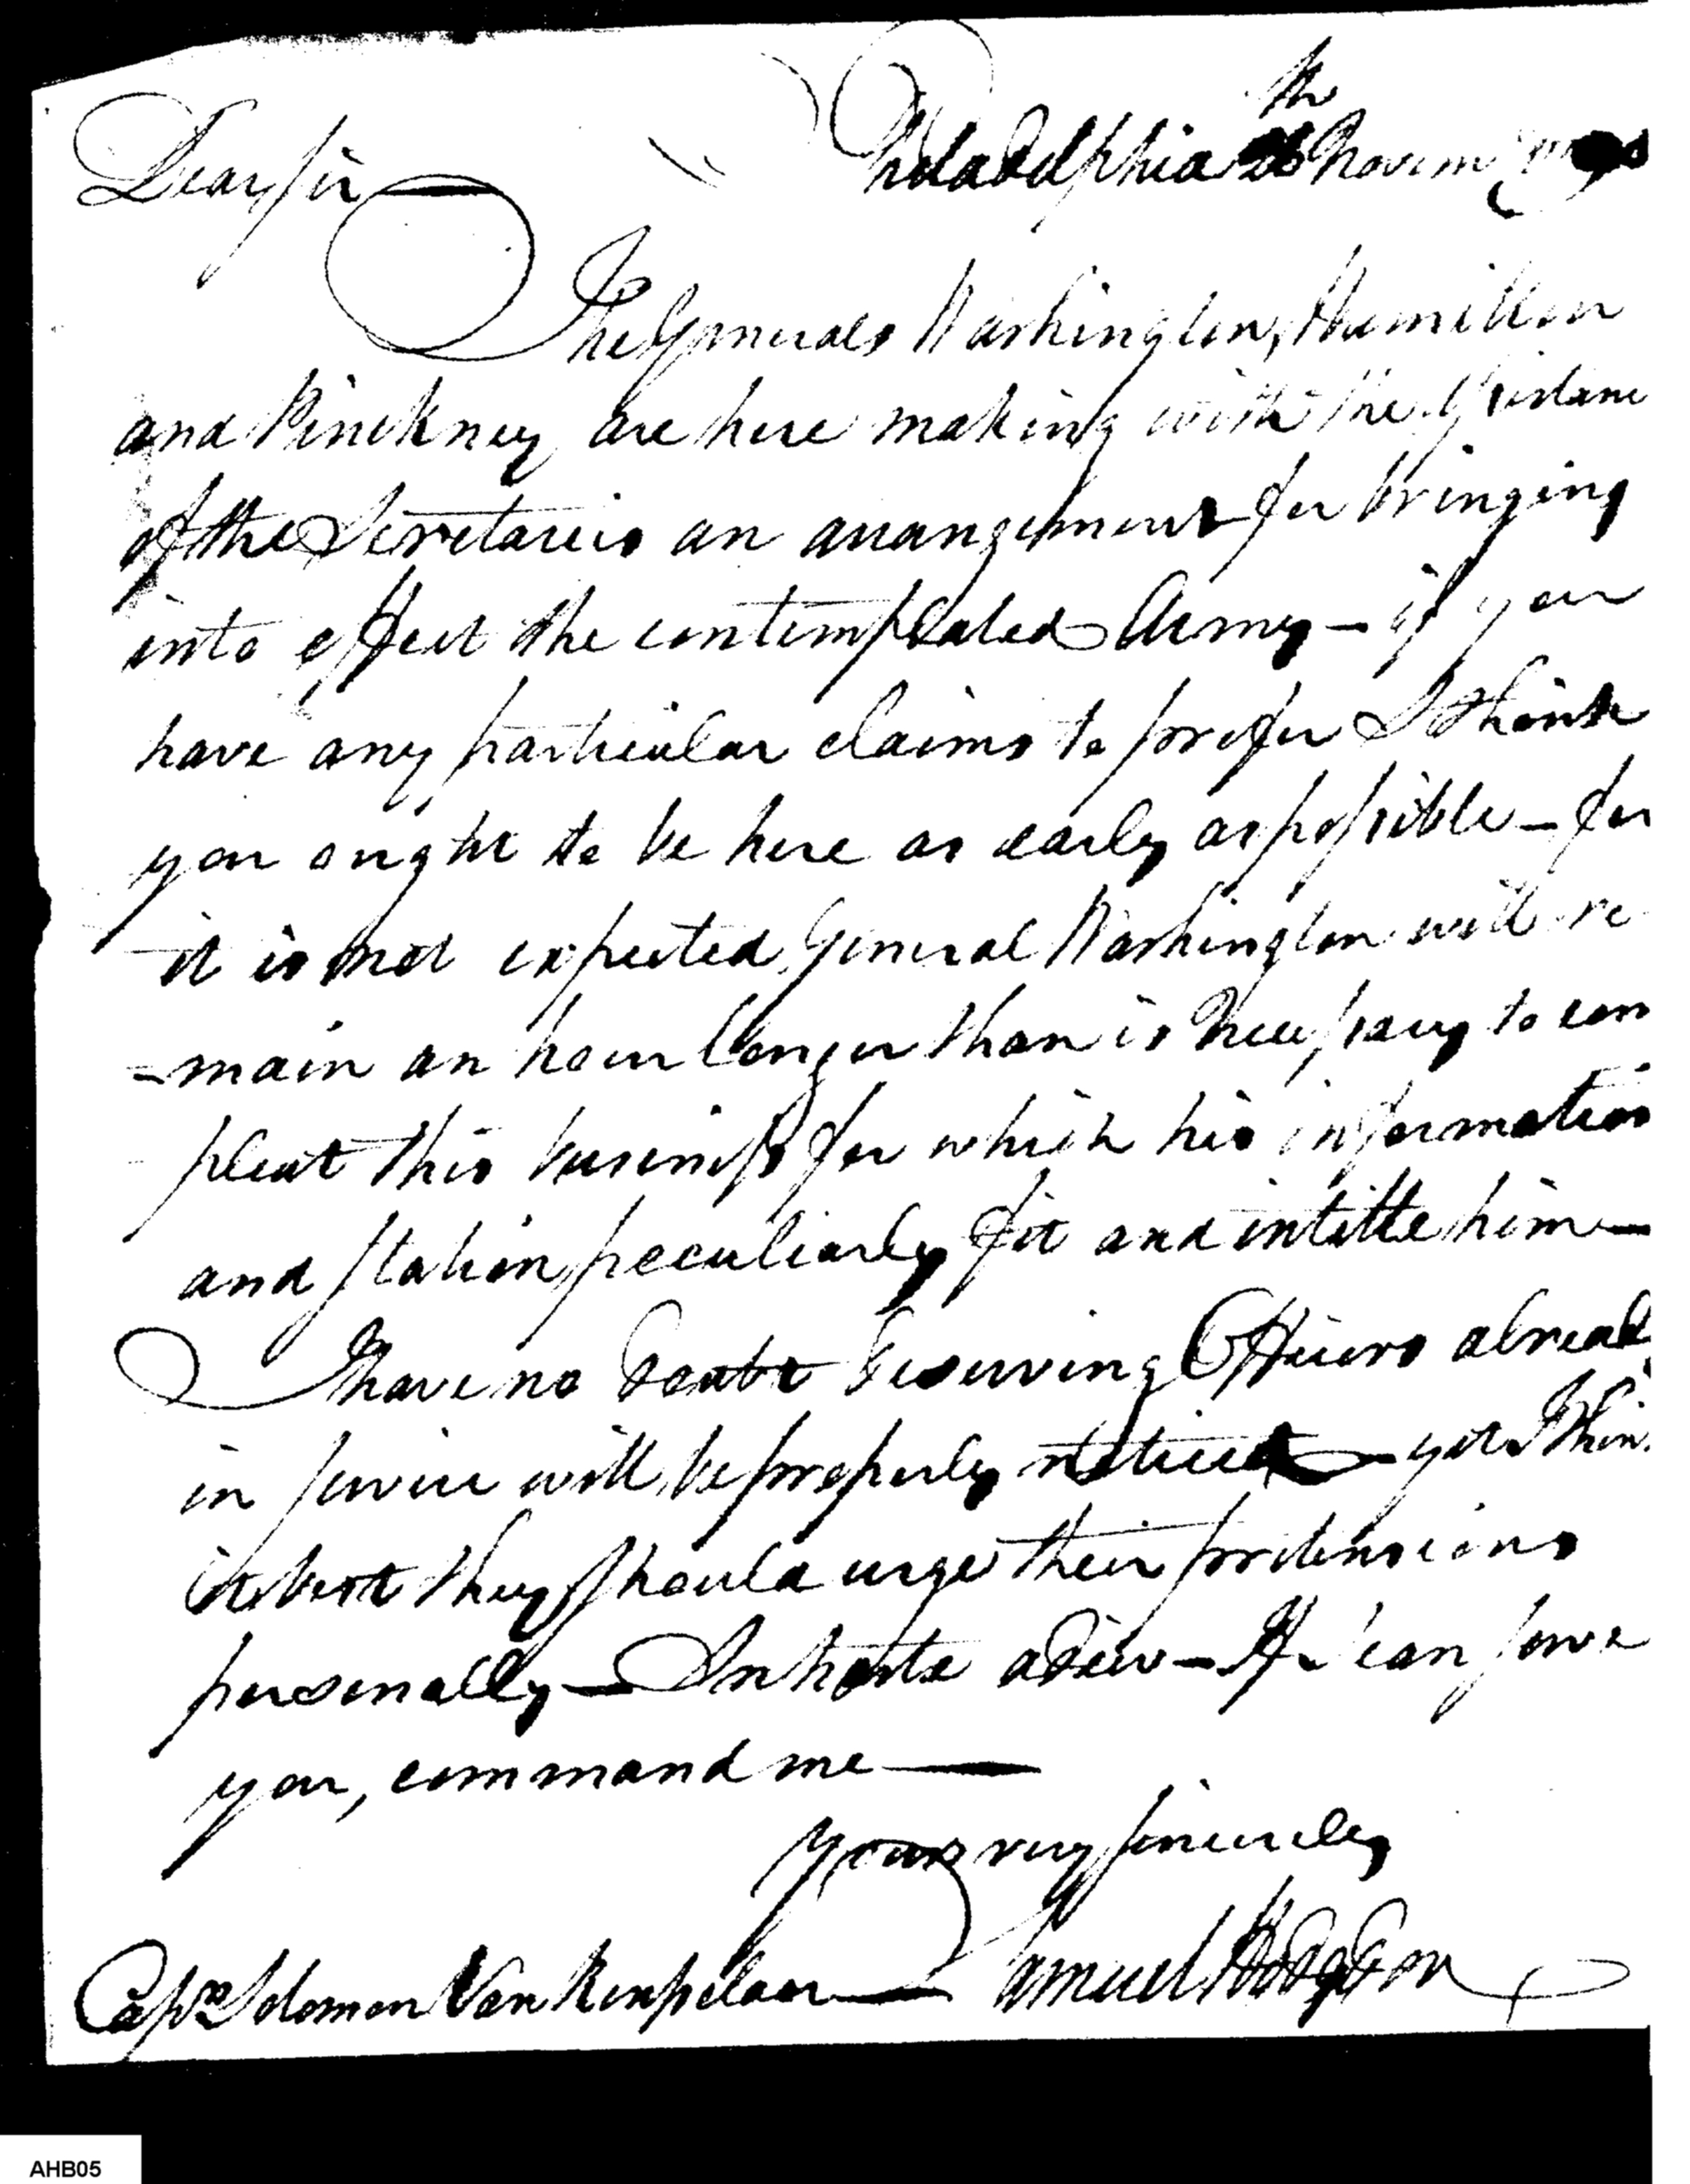 Philadelphia th Novem
Dear Sir
The Generals Washington, Hamilton
and Pinckney are here making with the
of the Secretaries an arrangement for bringing
into effect the contemplated Army – if you
have any particular claims to prefer I think
you ought to be here as early as possible – for
it is not expected General Washington will re
-main an hour longer than is necessary to com
pleat this business for which his information
and station peculiarly fit and intitle him –
I have no doubt deserving Officers alread
in service will be properly noticed – yet I thin
it best they should urge their pretensions
personally – In haste adieu – If I can serve
you, command me –
Yours very sincerely
Samuel Hodgdon
Capn Solomon Van Rensselaer
AHB05